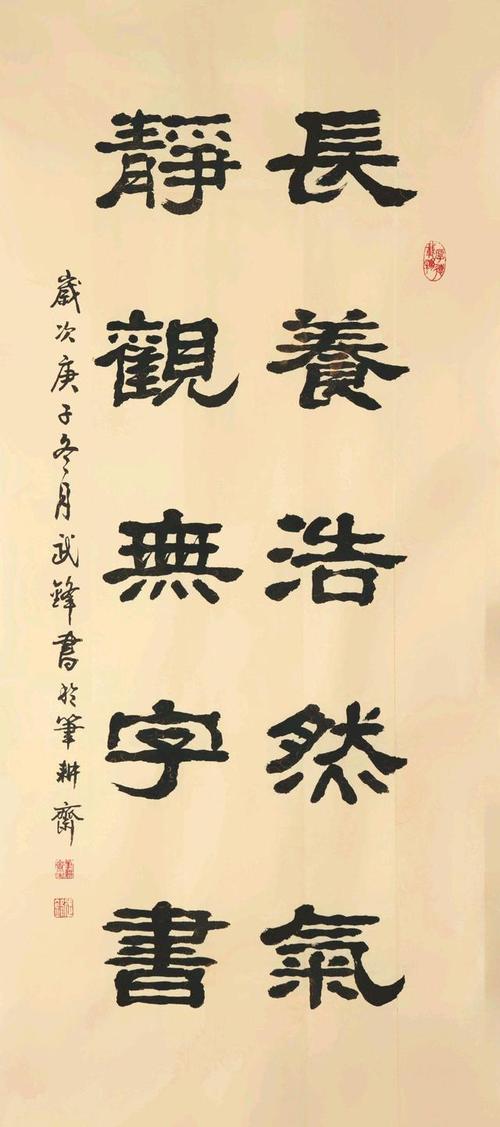 長養浩然氣
靜觀無字書
歲次庚子冬月武鋒書於筆耕齋